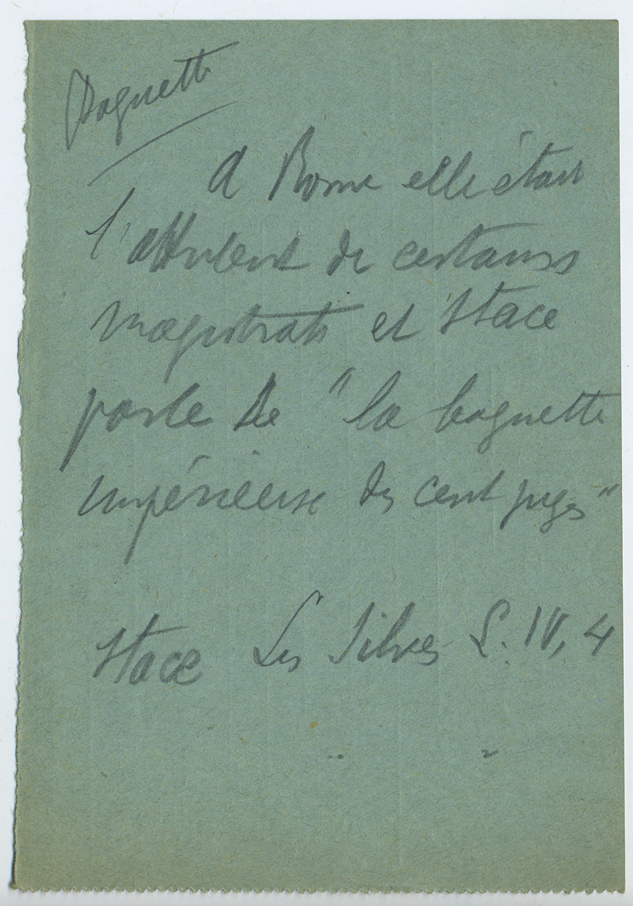 Baguette
A Rome elle était
l'attribut de certains
magistrats et Stace
parle de "la baguette
impérieuse des cent juges"
Stace Les Silves L. IV, 4